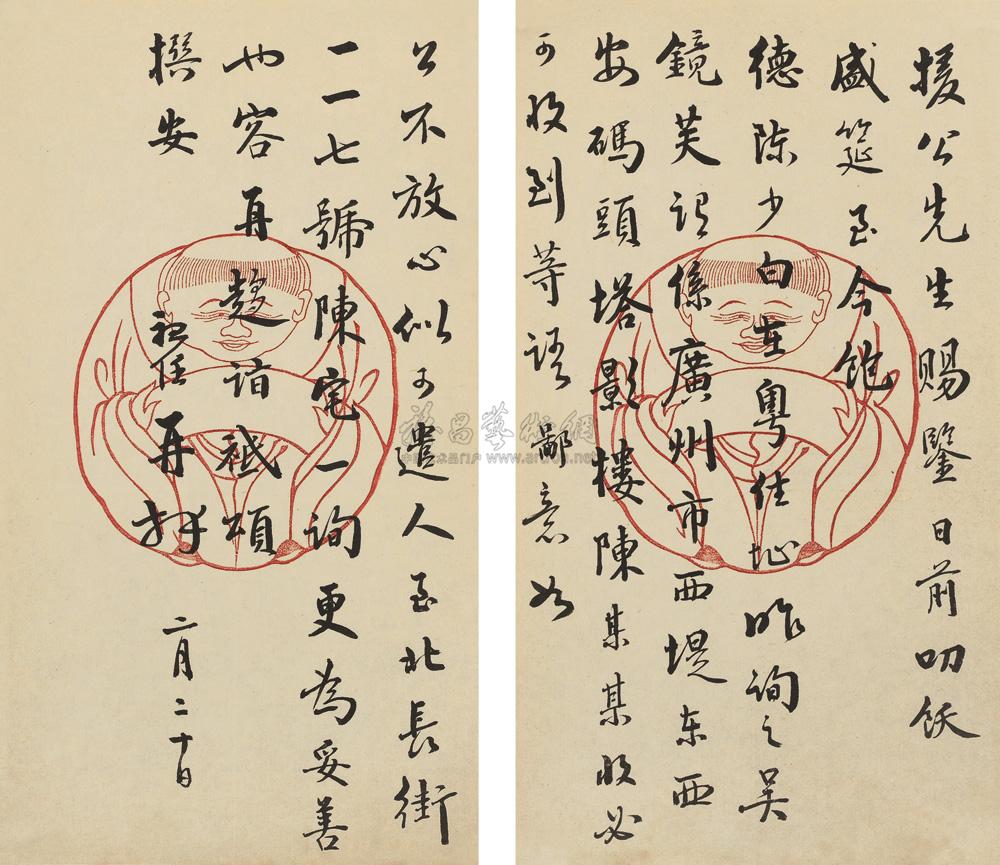 援公先生賜鑒日前叨飫
盛筵至今飽
德陈少白在粤住址昨询之吴
鏡芙谓係廣州市西堤东西
安碼頭塔影樓陳某某收必
可收到等语鄙意如
公不放心似可遣人至北長街
一一七號陳宅一询更為妥善
也容再趨诣祗頌
撰安
祖任再拜
二月二十日
www.artron.net